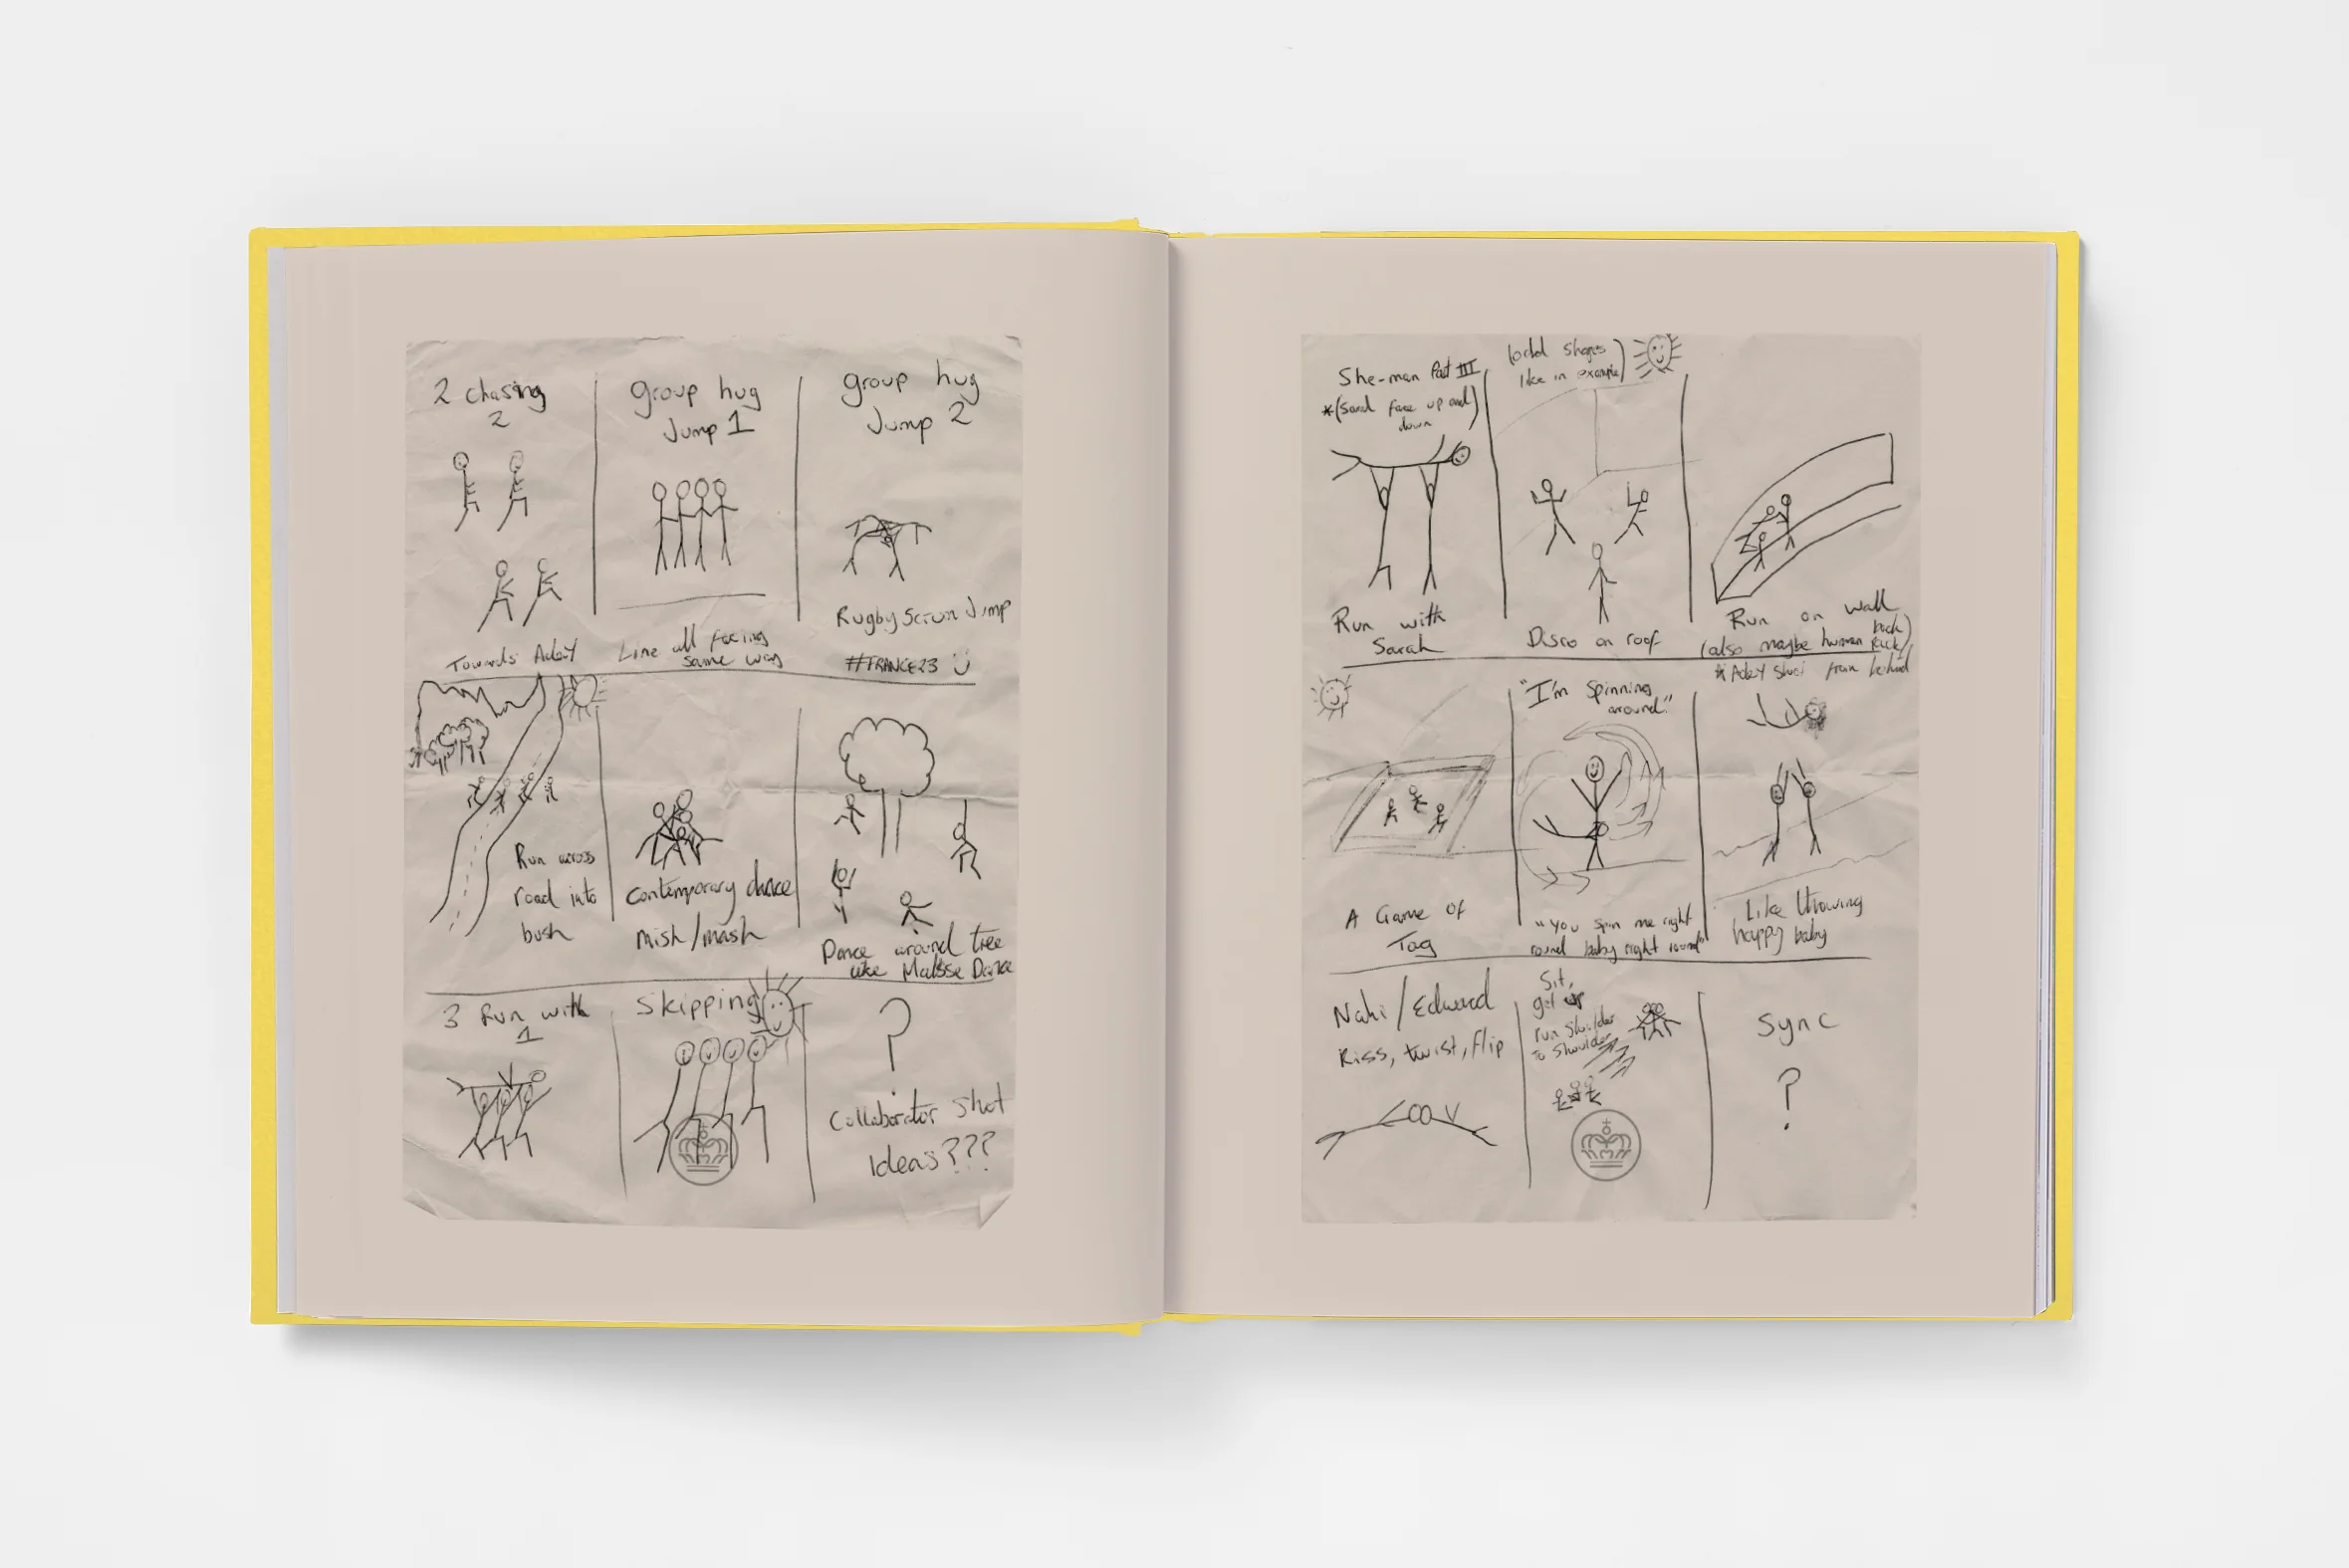 2 chasing
2
Towards Adey
group hug
Jump 1
Line all facing
same way
group hug
Jump 2
Rugby Scrum Jump
#TRANCE23
Run across
road into
bush
Contemporary dance
Mish/mash
Dance around tree
like Matisse Dance
3 Run with
1
Skipping
?
Collaborator Shot
Ideas???
She-man Part III
*(Sand face up and
down
Run with
Sarah
(odd shapes
like in example)
Disco on roof
Run on wall
(also maybe human
*Adey Shot from behind
A Game of
Tag
"I'm Spinning
around"
"You spin me right
round baby right round"
Like throwing
happy baby
Nahi/Edward
Kiss, twist, flip
Sit,
get up
run shoulder
to shoulder
Sync
?